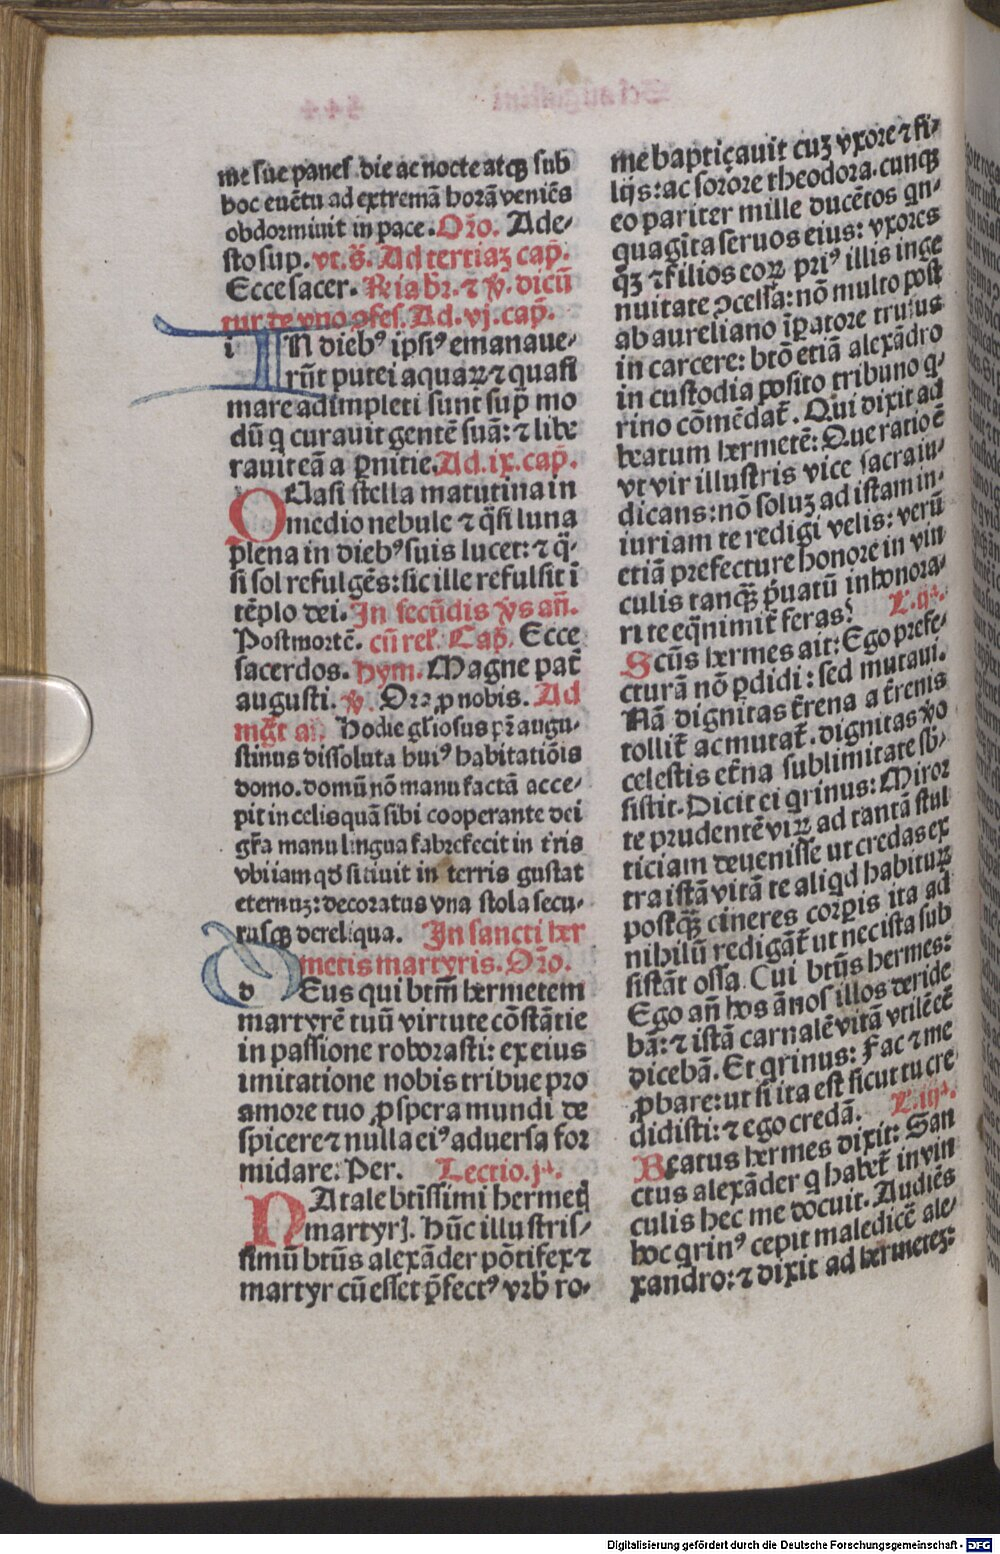 me sue panes die ac nocte atqꝫ sub
hoc euētu ad extremā horā veniēs
obdormiuit in pace. Oꝛ̄o. Ade-
sto sup. vt. s̄. Ad tertiaꝫ cap̄.
Ecce sacer. R̄ia br̄. ⁊ v̄. dicū
tur de vno ↄfes. Ad. vj. cap̄.
i IN diebꝰ ipsiꝰ emanaue-
rūt putei aquaꝝ ⁊ quasi
mare adimpleti sunt sup̄ mo
dū q curauit gentē suā: ⁊ libe
rauit eā a ꝑnitie. Ad. ix. cap̄.
QUasi stella matutina in
medio nebule ⁊ q̄si luna
plena in diebꝰ suis lucet: ⁊ q̄-
si sol refulgēs: sic ille refulsit ī
tēplo dei. In secūdis v̄s an̄.
Post mortē. cū rel. Cap̄. Ecce
sacerdos. hym. Magne pat̄
augusti. v̄. Oꝛꝛ ꝓ nobis. Ad
mḡt an̄. Hodie gl̄iosus pr̄ augu-
stinus dissoluta huiꝰ habitatiōis
domo. domū nō manu factā acce-
pit in celis quā sibi cooperante dei
gr̄a manu lingua fabrefecit in t̄ris
vbi iam qd̄ sitiuit in terris gustat
eternuꝫ: decoratus vna stola secu-
rusqꝫ de reliqua. In sancti her
metis martyris. Oꝛ̄o.
d DEus qui btm̄ hermetem
martyrē tuū virtute cōstātie
in passione roborasti: ex eius
imitatione nobis tribue pro
amore tuo ꝓspera mundi de
spicere ⁊ nulla eiꝰ aduersa for
midare. Per. Lectio. jᵃ.
NAtale btissimi hermetꝭ
martyrꝭ. Hūc illustris-
simū btūs alexāder pōtifex ⁊
martyr cū esset p̄fectꝰ vrb̄ ro-
me baptiçauit cuꝫ vxore ⁊ fi-
lijs: ac sorore theodora. cunqꝫ
eo pariter mille ducētos qn-
quagīta seruos eius: vxores
qꝫ ⁊ filios eoꝝ priꝰ illis inge
nuitate ↄcessa: nō multo post
ab aureliano īꝑatore trusus
in carcere: btō etiā alexādro
in custodia posito tribuno q-
rino cōmēdat̄. Qui dixit ad
beatum hermetē: Que ratio ē
vt vir illustris vice sacra iu-
dicans: nō soluꝫ ad istam in-
iuriam te redigi velis: verū
etiā prefecture honore in vin
culis tanqꝫ p̄uatū inhonora-
ri te eq̄nimit̄ feras? L. ijᵃ.
Scūs hermes ait: Ego prefe-
cturā nō ꝑdidi: sed mutaui.
Nā dignitas t̄rena a t̄renis
tollit̄ ac mutat̄. dignitas v̄o
celestis et̄na sublimitate sb̄-
sistit. Dicit ei qrinus: Miror
te prudentē viꝝ ad tantā stul
ticiam deuenisse ut credas ex
tra istā vitā te aliqd habituꝝ
postqꝫ cineres corꝑis ita ad
nihilū redigāt̄ ut nec ista sub
sistāt ossa. Cui btūs hermes:
Ego an̄ hos ānos illos deride
bā: ⁊ istā carnalē vitā vtilē eē
dicebā. Et qrinus: Fac ⁊ me
ꝓbare: ut si ita est sicut tu cre
didisti: ⁊ ego credā. L. iijᵃ.
Beatus hermes dixit: San
ctus alexāder q habet̄ in vin
culis hec me docuit. Audiēs
hoc qrinꝰ cepit maledicē ale-
xandro: ⁊ dixit ad hermetēꝫ:
Digitalisierung gefördert durch die Deutsche Forschungsgemeinschaft - DFG